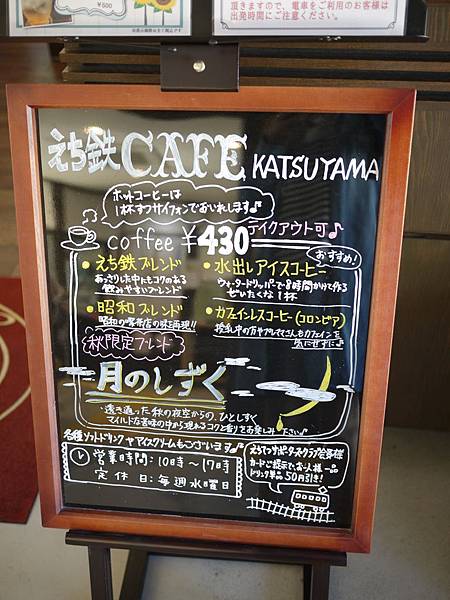 ¥500
頂きますので、電車をご利用のお客様は
出発時間にご注意ください。
えち鉄CAFE KATSUYAMA
ホットコーヒーは
1杯ずつサイフォンでおいれします♪
テイクアウト可♪
coffee ¥430
おすすめ!
・えち鉄ブレンド
あっさりした中にもコクのある
飲みやすいブレンド
・昭和ブレンド
昭和の喫茶店の味を再現!!
・水出しアイスコーヒー
ウォータードリッパーで8時間かけて作る
ぜいたくな1杯
・カフェインレスコーヒー(コロンビア)
授乳中の方やプレママさんもカフェインを
気にせずに♪
秋限定ブレンド
月のしずく
・透き通った秋の夜空からの、ひとしずく
マイルドな苦味の中から現れるコクと香りをお楽しみ下さい♪
各種ソフトドリンクやアイスクリームもございます♪
営業時間:10時〜17時
定休日:毎週水曜日
えちてつサポーターズクラブ会員様
カードご提示で、お一人様一品
ドリンク単品50円引き!